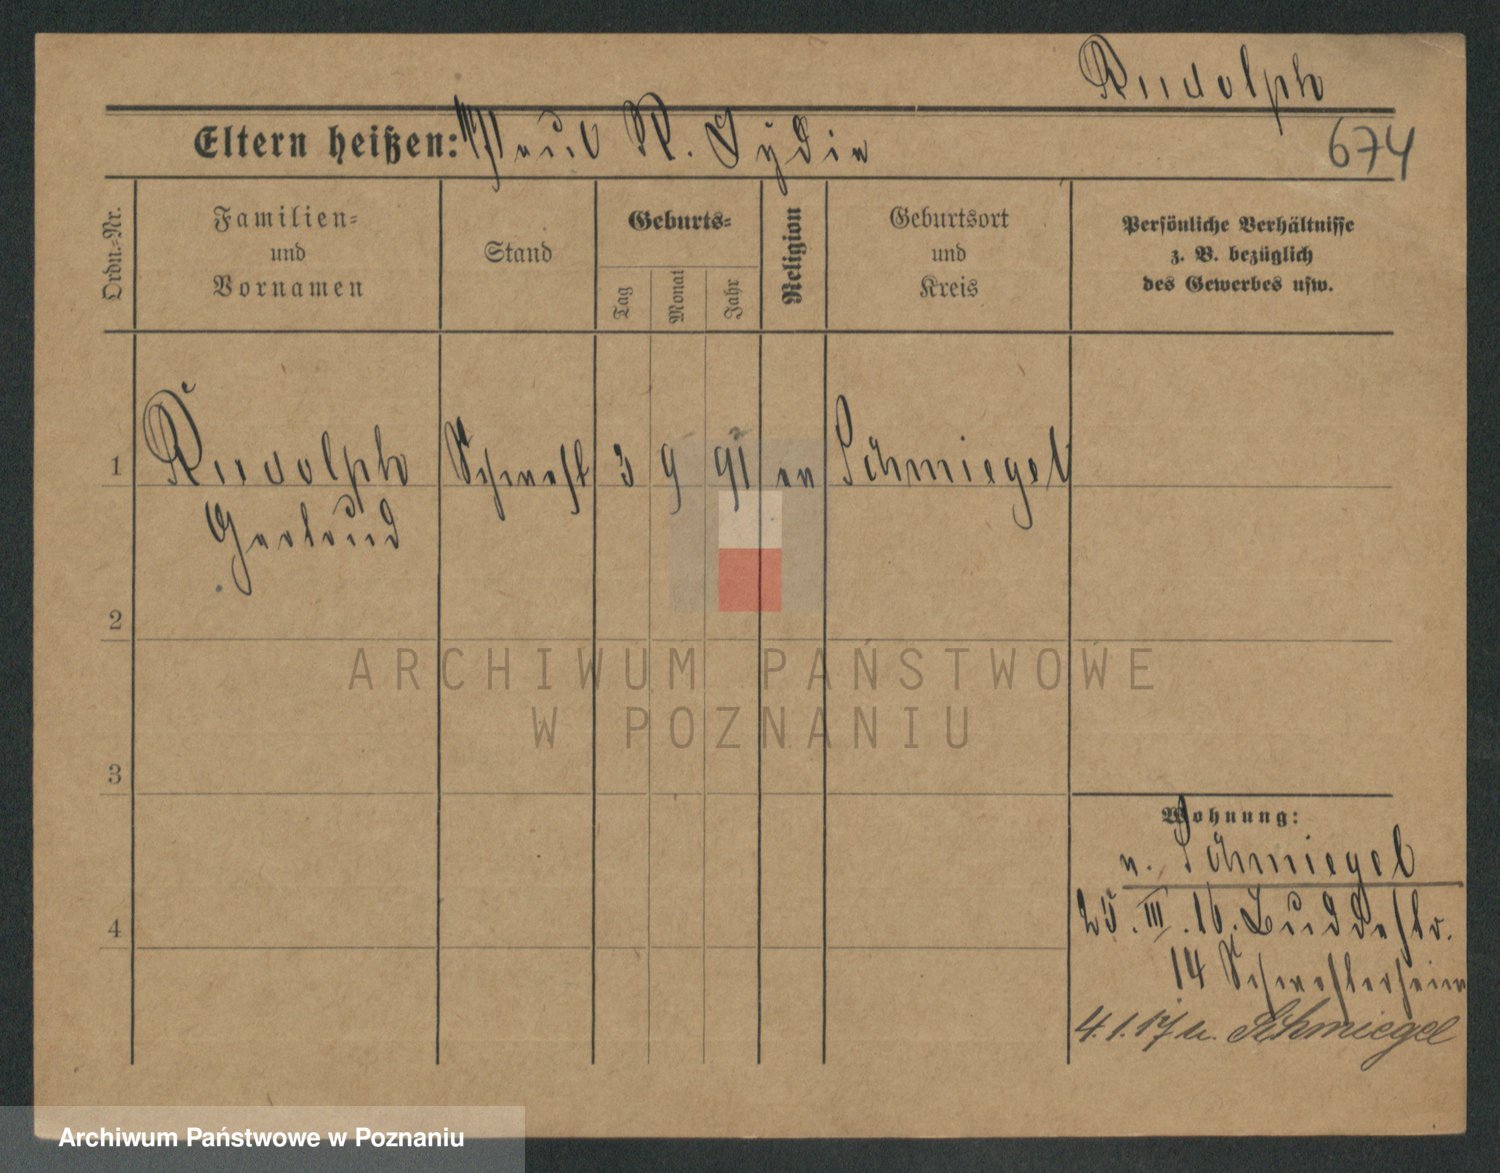 Rudolph
Eltern heißen: Paul R. Lydia
674
Ordn.=Nr.
Familien=
und
Vornamen
Stand
Geburts=
Tag
Monat
Jahr
Religion
Geburtsort
und
Kreis
Persönliche Verhältnisse
z. B. bezüglich
des Gewerbes usw.
1 Rudolph Schwest 3 9 91 ev Schmiegel
Gertrud
2
3
4
Wohnung:
v. Schmiegel
25. III. 16. Buddestr.
14 Schwesternheim
4.1.17 n. Schmiegel
ARCHIWUM PAŃSTWOWE
W POZNANIU
Archiwum Państwowe w Poznaniu